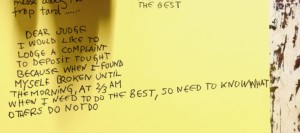 trop tard......
THE BEST
DEAR JUDGE
I WOULD LIKE TO
LODGE A COMPLAINT
TO DEPOSIT TOUGHT
BECAUSE WHEN I FOUND
MYSELF BROKEN UNTIL
THE MORNING, AT 2/3 AM
WHEN I NEED TO DO THE BEST, SO NEED TO KNOW WHAT
OTHERS DO NOT DO